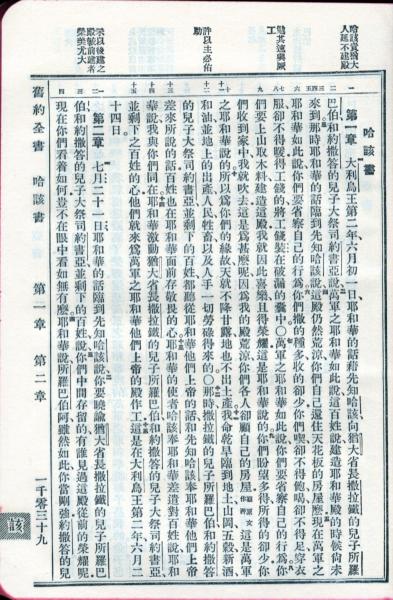 哈該責猶大
人延不建殿
勉其速興厥
工
許以主必佑
助
殿較前建者
榮美尤大
哈該書
第一章 大利烏王第二年六月初一日耶和華的話藉先知哈該向猶大省長撒拉鐵的兒子所羅
巴伯和約撒答的兒子大祭司約書亞說萬軍之耶和華如此說這百姓說建造耶和華殿的時候尚未
來到那時耶和華的話臨到先知哈該說這殿仍然荒涼你們自己還住天花板的房屋麼現在萬軍之
耶和華如此說你們要省察自己的行為你們撒的種多收的卻少你們喫卻不得飽喝卻不得足穿衣
服卻不得暖得工錢的將工錢裝在破漏的囊中○萬軍之耶和華如此說你們要省察自己的行為你
們要上山取木料建造這殿我就因此喜樂且得榮耀這是耶和華說的你們盼望多得所得的卻少你
們收到家中我就吹去這是為甚麼呢因為我的殿荒涼你們各人卻顧自己的房屋這是萬軍
之耶和華說的所以為你們的緣故天就不降甘露地也不出土產我命乾旱臨到地土山岡五穀新酒
和油並地上的出產人民牲畜以及人手一切勞碌得來的○那時撒拉鐵的兒子所羅巴伯和約撒答
的兒子大祭司約書亞並剩下的百姓都聽從耶和華他們上帝的話和先知哈該奉耶和華他們上帝
差來所說的話百姓也在耶和華面前存敬畏的心耶和華的使者哈該奉耶和華差遣對百姓說耶和
華說我與你們同在耶和華激動猶大省長撒拉鐵的兒子所羅巴伯和約撒答的兒子大祭司約書亞
並剩下之百姓的心他們就來為萬軍之耶和華他們上帝的殿作工這是在大利烏王第二年六月二
十四日
第二章 七月二十一日耶和華的話臨到先知哈該說你要曉諭猶大省長撒拉鐵的兒子所羅巴
伯和約撒答的兒子大祭司約書亞並剩下的百姓說你們中間存留的有誰見過這殿從前的榮耀呢
現在你們看着如何豈不在眼中看如無有麼耶和華說所羅巴伯阿雖然如此你當剛強約撒答的兒
舊約全書 哈該書 第一章 第二章 一千零三十九
該